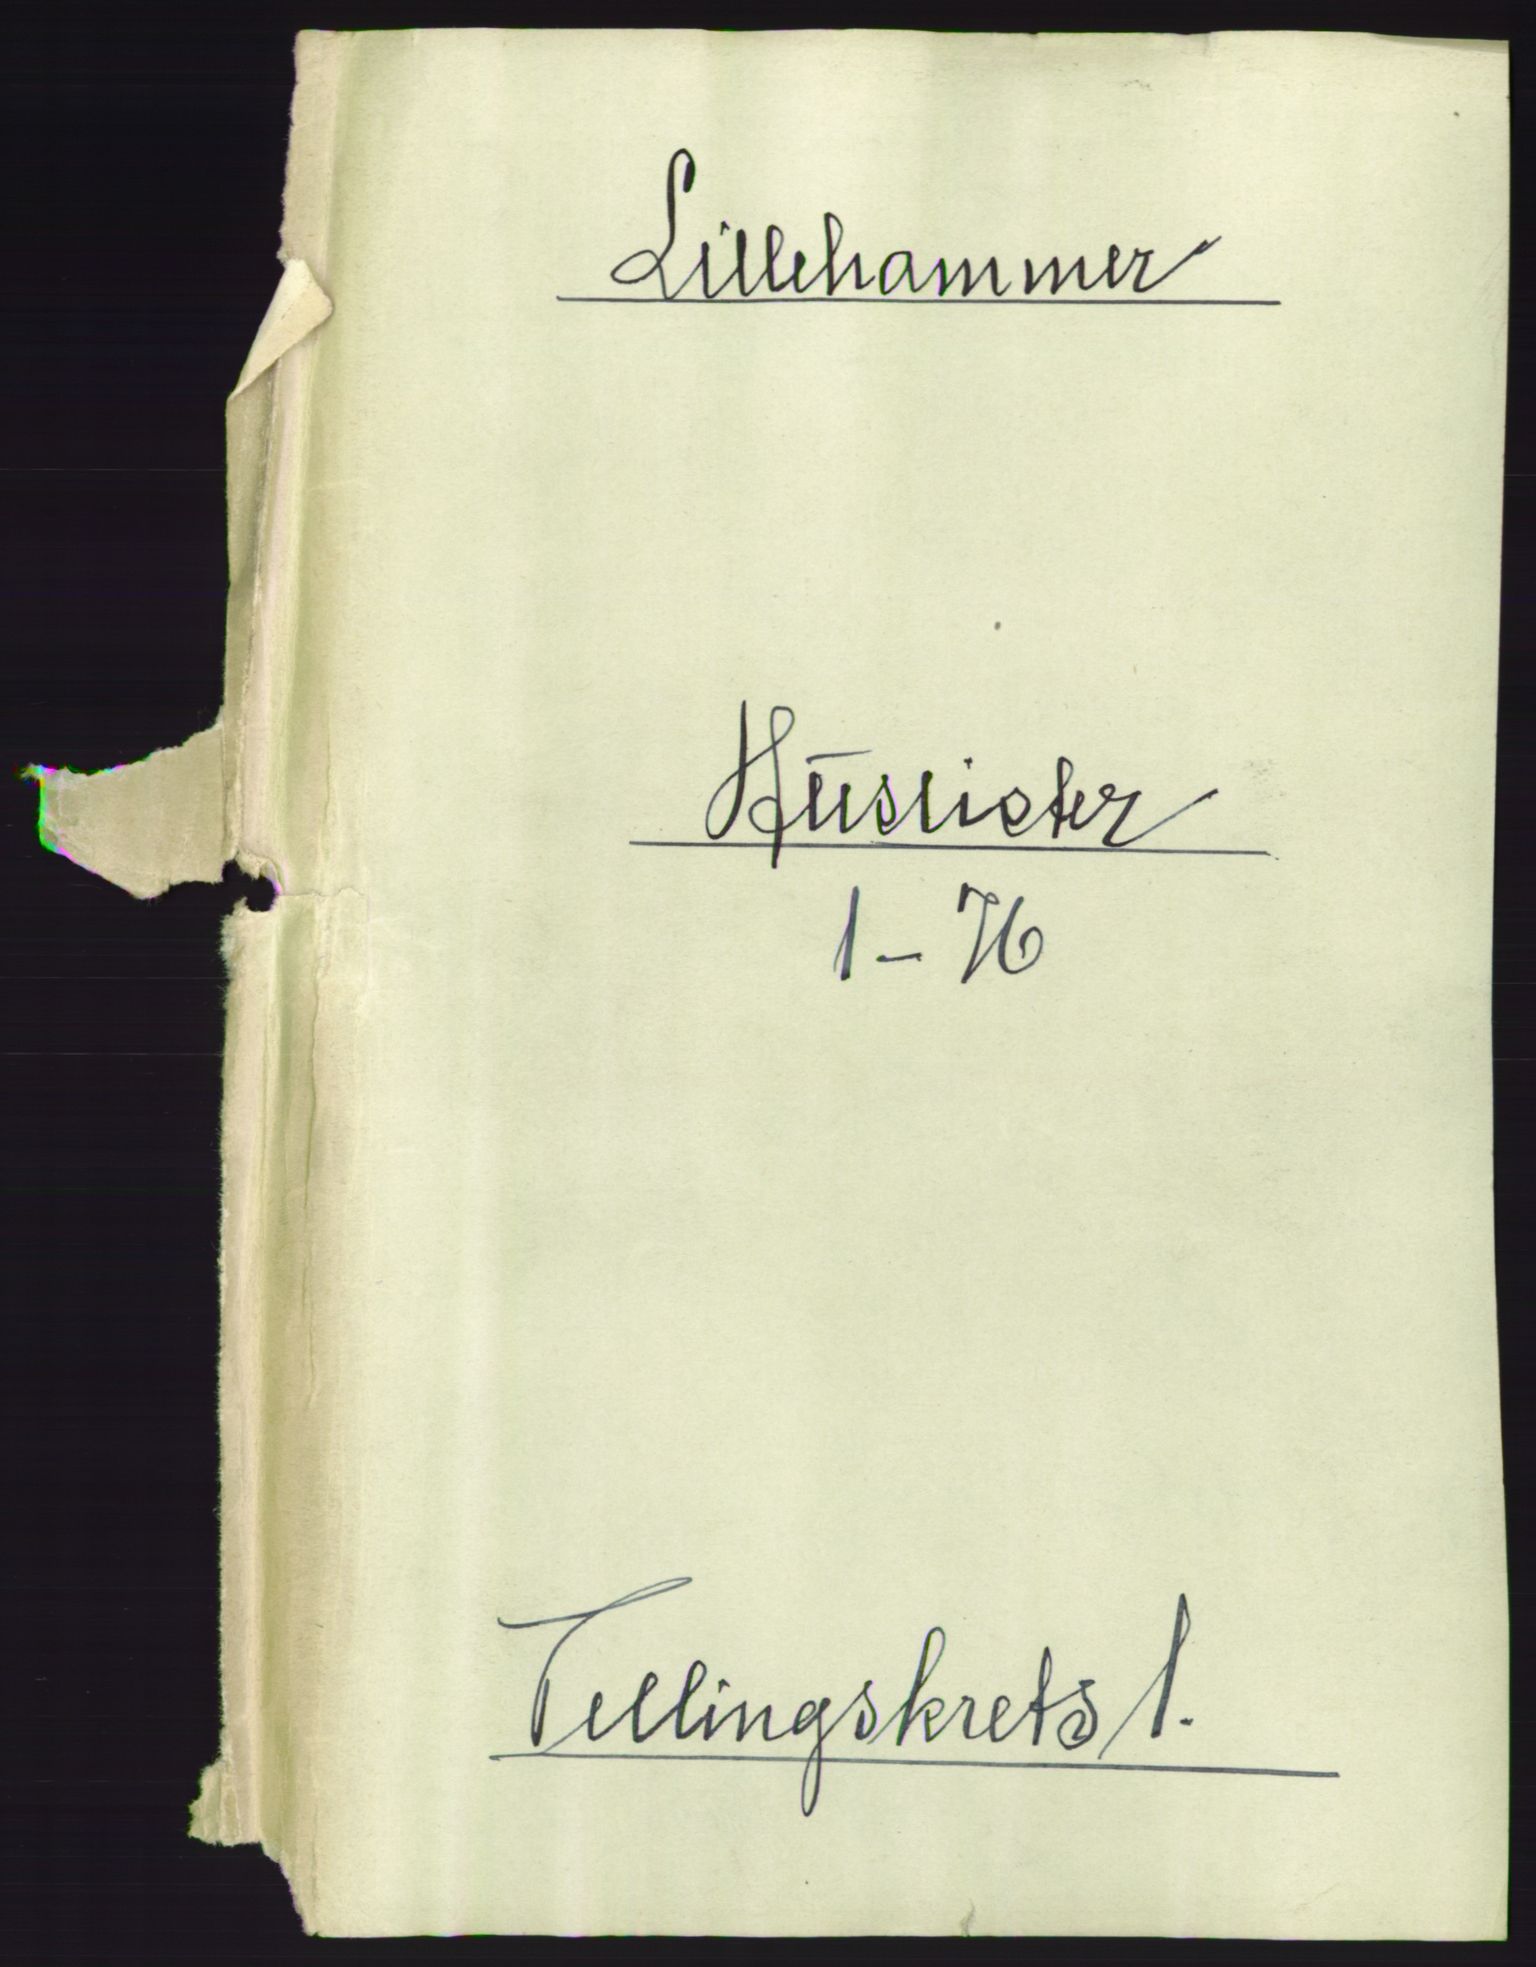 Lillehammer
Huslister
1 - 76
Tellingskrets 1.